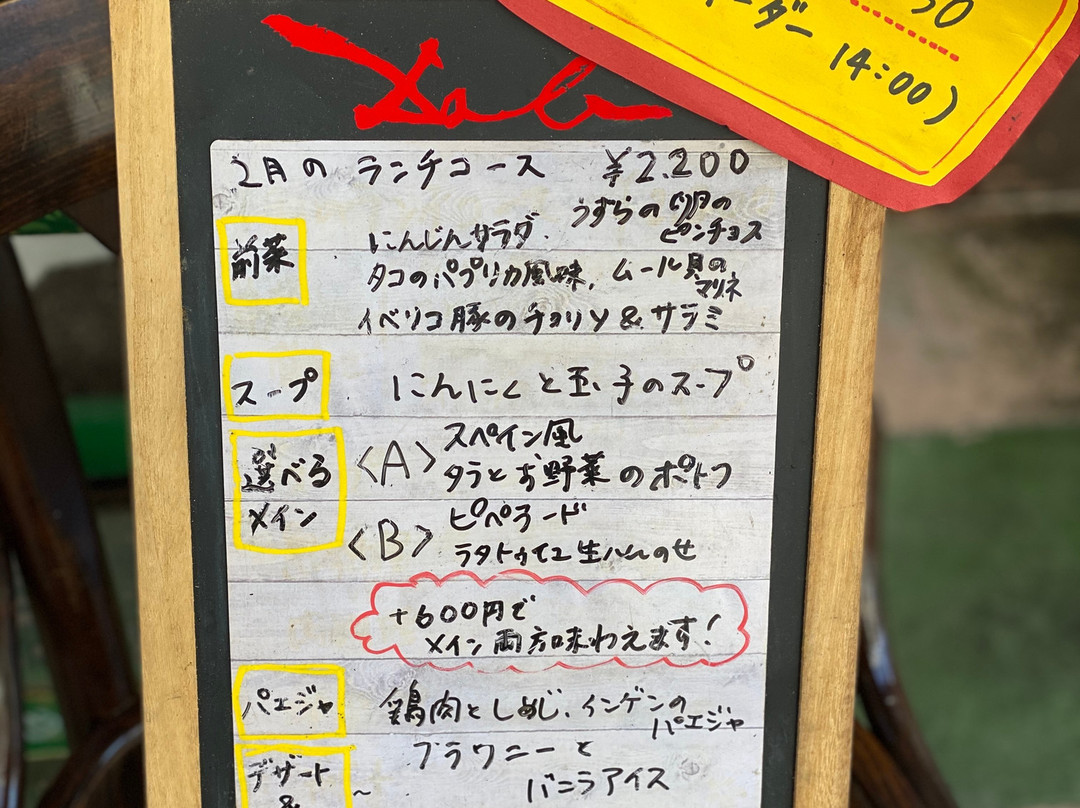 50
ーダー 14:00)
2月の ランチコース ¥2.200
前菜
にんじんサラダ. うずらの卵の
ピンチョス
タコのパプリカ風味, ムール貝の
マリネ
イベリコ豚のチョリソ&サラミ
スープ
にんにくと玉子のスープ
選べる
メイン
〈A〉 スペイン風
タラとお野菜のポトフ
〈B〉 ピペラード
ラタトゥイユ生ハムのせ
+600円で
メイン両方味わえます!
パエジャ
鶏肉としめじ、インゲンの
パエジャ
デザート
&
ブラウニーと
バニラアイス